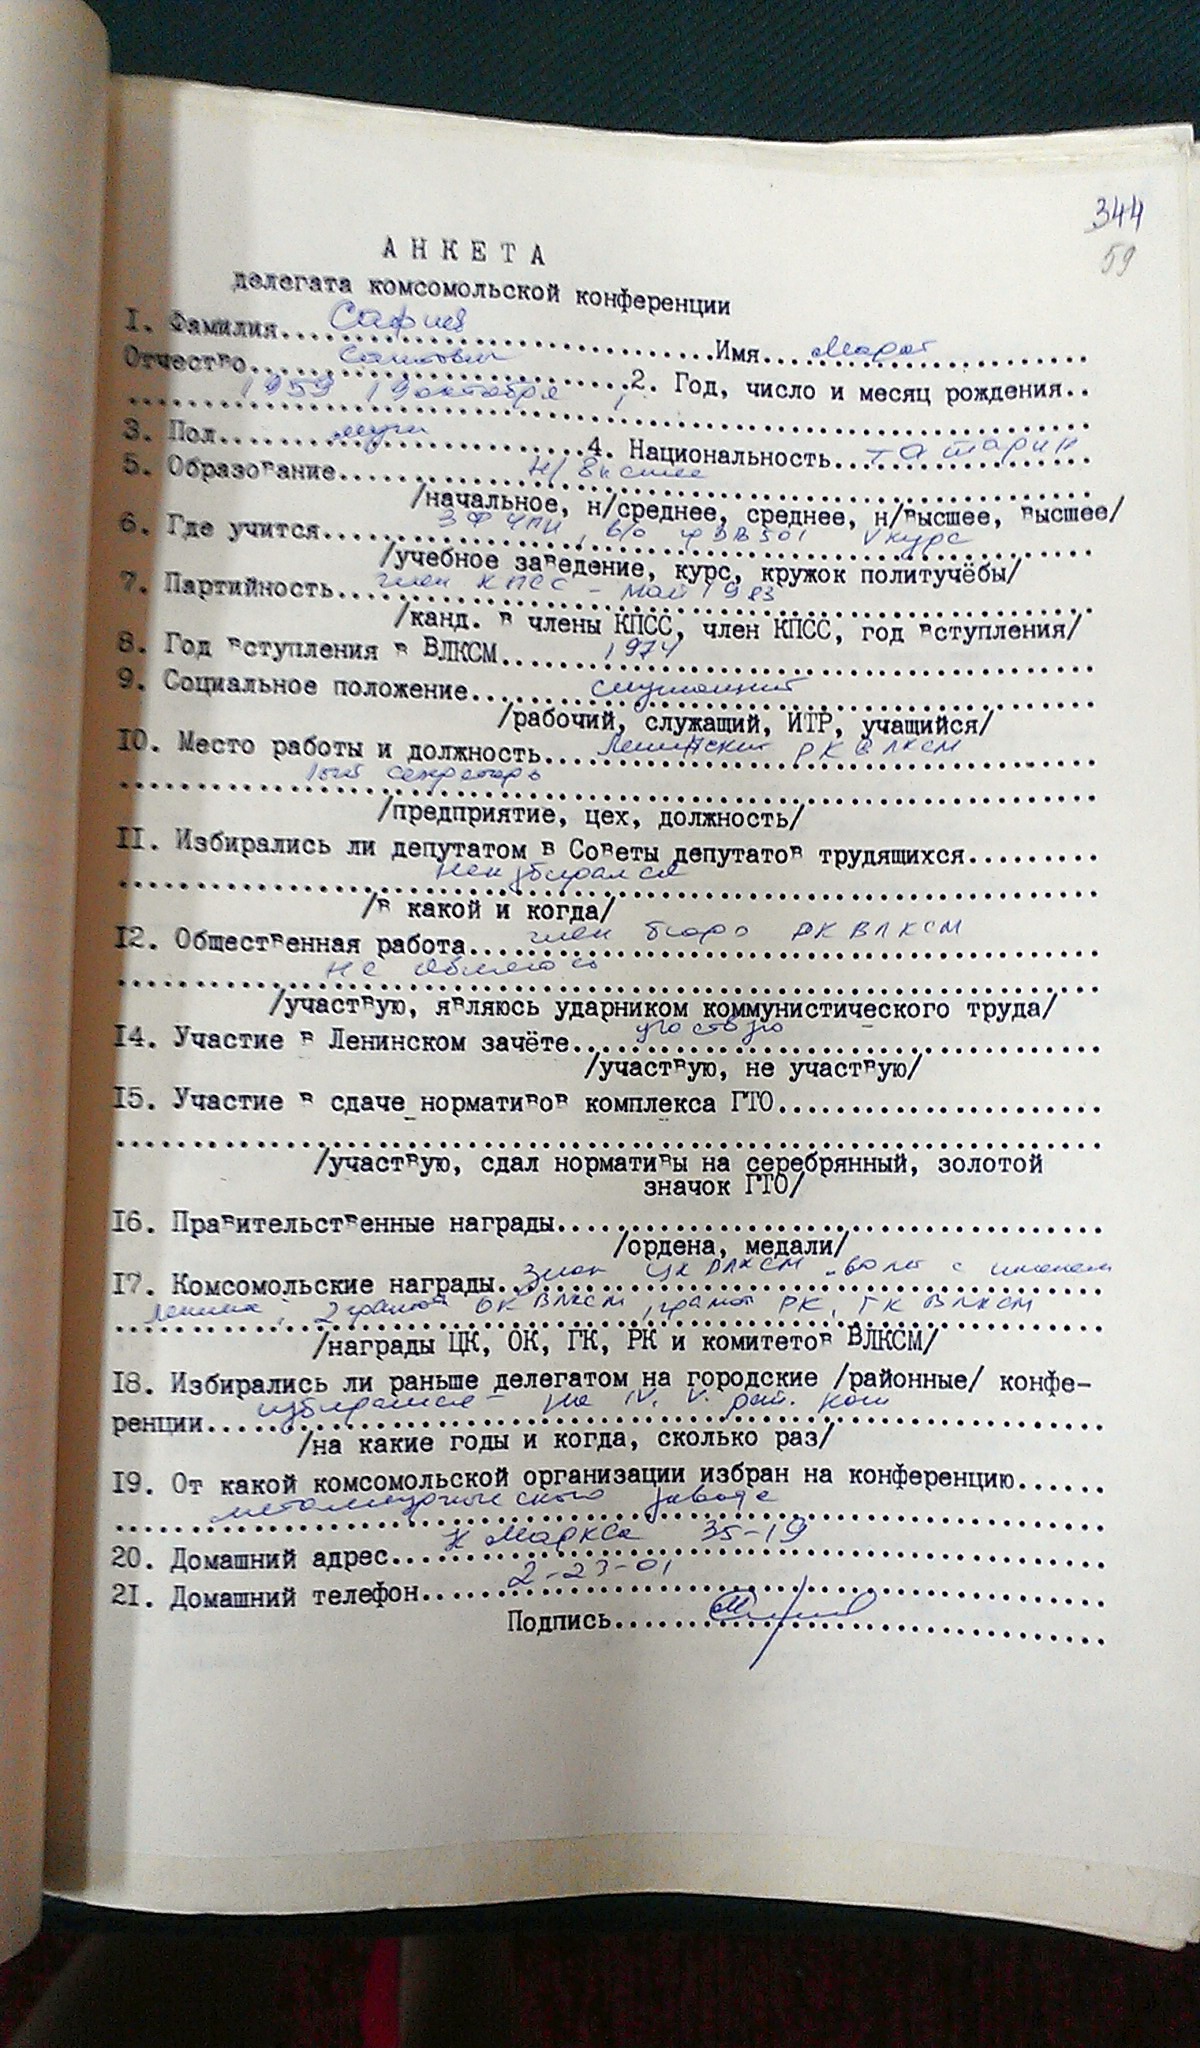 344
59
АНКЕТА
делегата комсомольской конференции
I. Фамилия.... Сафиев ....Имя.... Марат
Отчество.... ....2. Год, число и месяц рождения..
1959 19 октября
3. Пол.... муж ....4. Национальность.... татарин
5. Образование.... Н/высшее
/начальное, н/среднее, среднее, н/высшее, высшее/
6. Где учится.... ЗФ ЧПИ, V курс
/учебное заведение, курс, кружок политучёбы/
7. Партийность.... член КПСС - май 1983
/канд. в члены КПСС, член КПСС, год вступления/
8. Год вступления в ВЛКСМ.... 1974
9. Социальное положение.... служащий
/рабочий, служащий, ИТР, учащийся/
10. Место работы и должность.... Ленинский РК ВЛКСМ
1ый секретарь
/предприятие, цех, должность/
II. Избирались ли депутатом в Советы депутатов трудящихся.........
не избирался
/в какой и когда/
12. Общественная работа.... член бюро РК ВЛКСМ
не
/участвую, являюсь ударником коммунистического труда/
14. Участие в Ленинском зачёте.... участвую
/участвую, не участвую/
15. Участие в сдаче нормативов комплекса ГТО....
/участвую, сдал нормативы на серебрянный, золотой
значок ГТО/
16. Правительственные награды....
/ордена, медали/
17. Комсомольские награды.. Знак ЦК ВЛКСМ "60 лет с именем
Ленина", 2 грамоты ОК ВЛКСМ, грамоты РК, ГК ВЛКСМ
/награды ЦК, ОК, ГК, РК и комитетов ВЛКСМ/
18. Избирались ли раньше делегатом на городские /районные/ конфе-
ренции.... избирался - на IV, V рай. кон
/на какие годы и когда, сколько раз/
19. От какой комсомольской организации избран на конференцию......
металлургического завода
20. Домашний адрес.... К Маркса 35-19
21. Домашний телефон.... 2-23-01
Подпись....